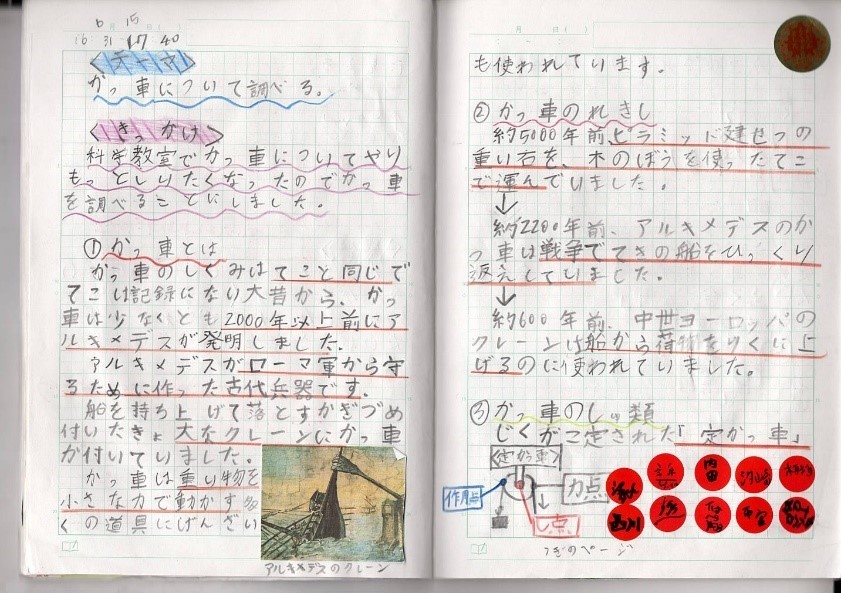 6 15
16 31 17 40
〈テーマ〉
かっ車について調べる。
〈きっかけ〉
科学教室でかっ車についてやり
もっとしりたくなったのでかっ車
を調べることにしました。
①かっ車とは
かっ車のしくみはてこと同じで
てこは記録にない大昔から、かっ
車は少なくとも2000年以上前にア
ルキメデスが発明しました。
アルキメデスがローマ軍から守
るために作った古代兵器です。
船を持ち上げて落とすかぎづめ
付いたきょ大なクレーンにかっ車
が付いていました。
かっ車は重い物を
小さな力で動かす多
くの道具にげんざい
アルキメデスのクレーン
月 日( )
も使われています。
②かっ車のれきし
約5000年前、ピラミッド建せつの
重い石を、木のぼうを使ったてこ
で運んでいました。
↓
約2200年前、アルキメデスのか
っ車は戦争でてきの船をひっくり
返えしていました。
↓
約600年前、中世ヨーロッパの
クレーンは船から荷物をりくに上
げるのに使われていました。
③かっ車のしゅ類
じくがこ定された「定かっ車」
〈定かっ車〉
作用点
力点
し点
つぎのページ